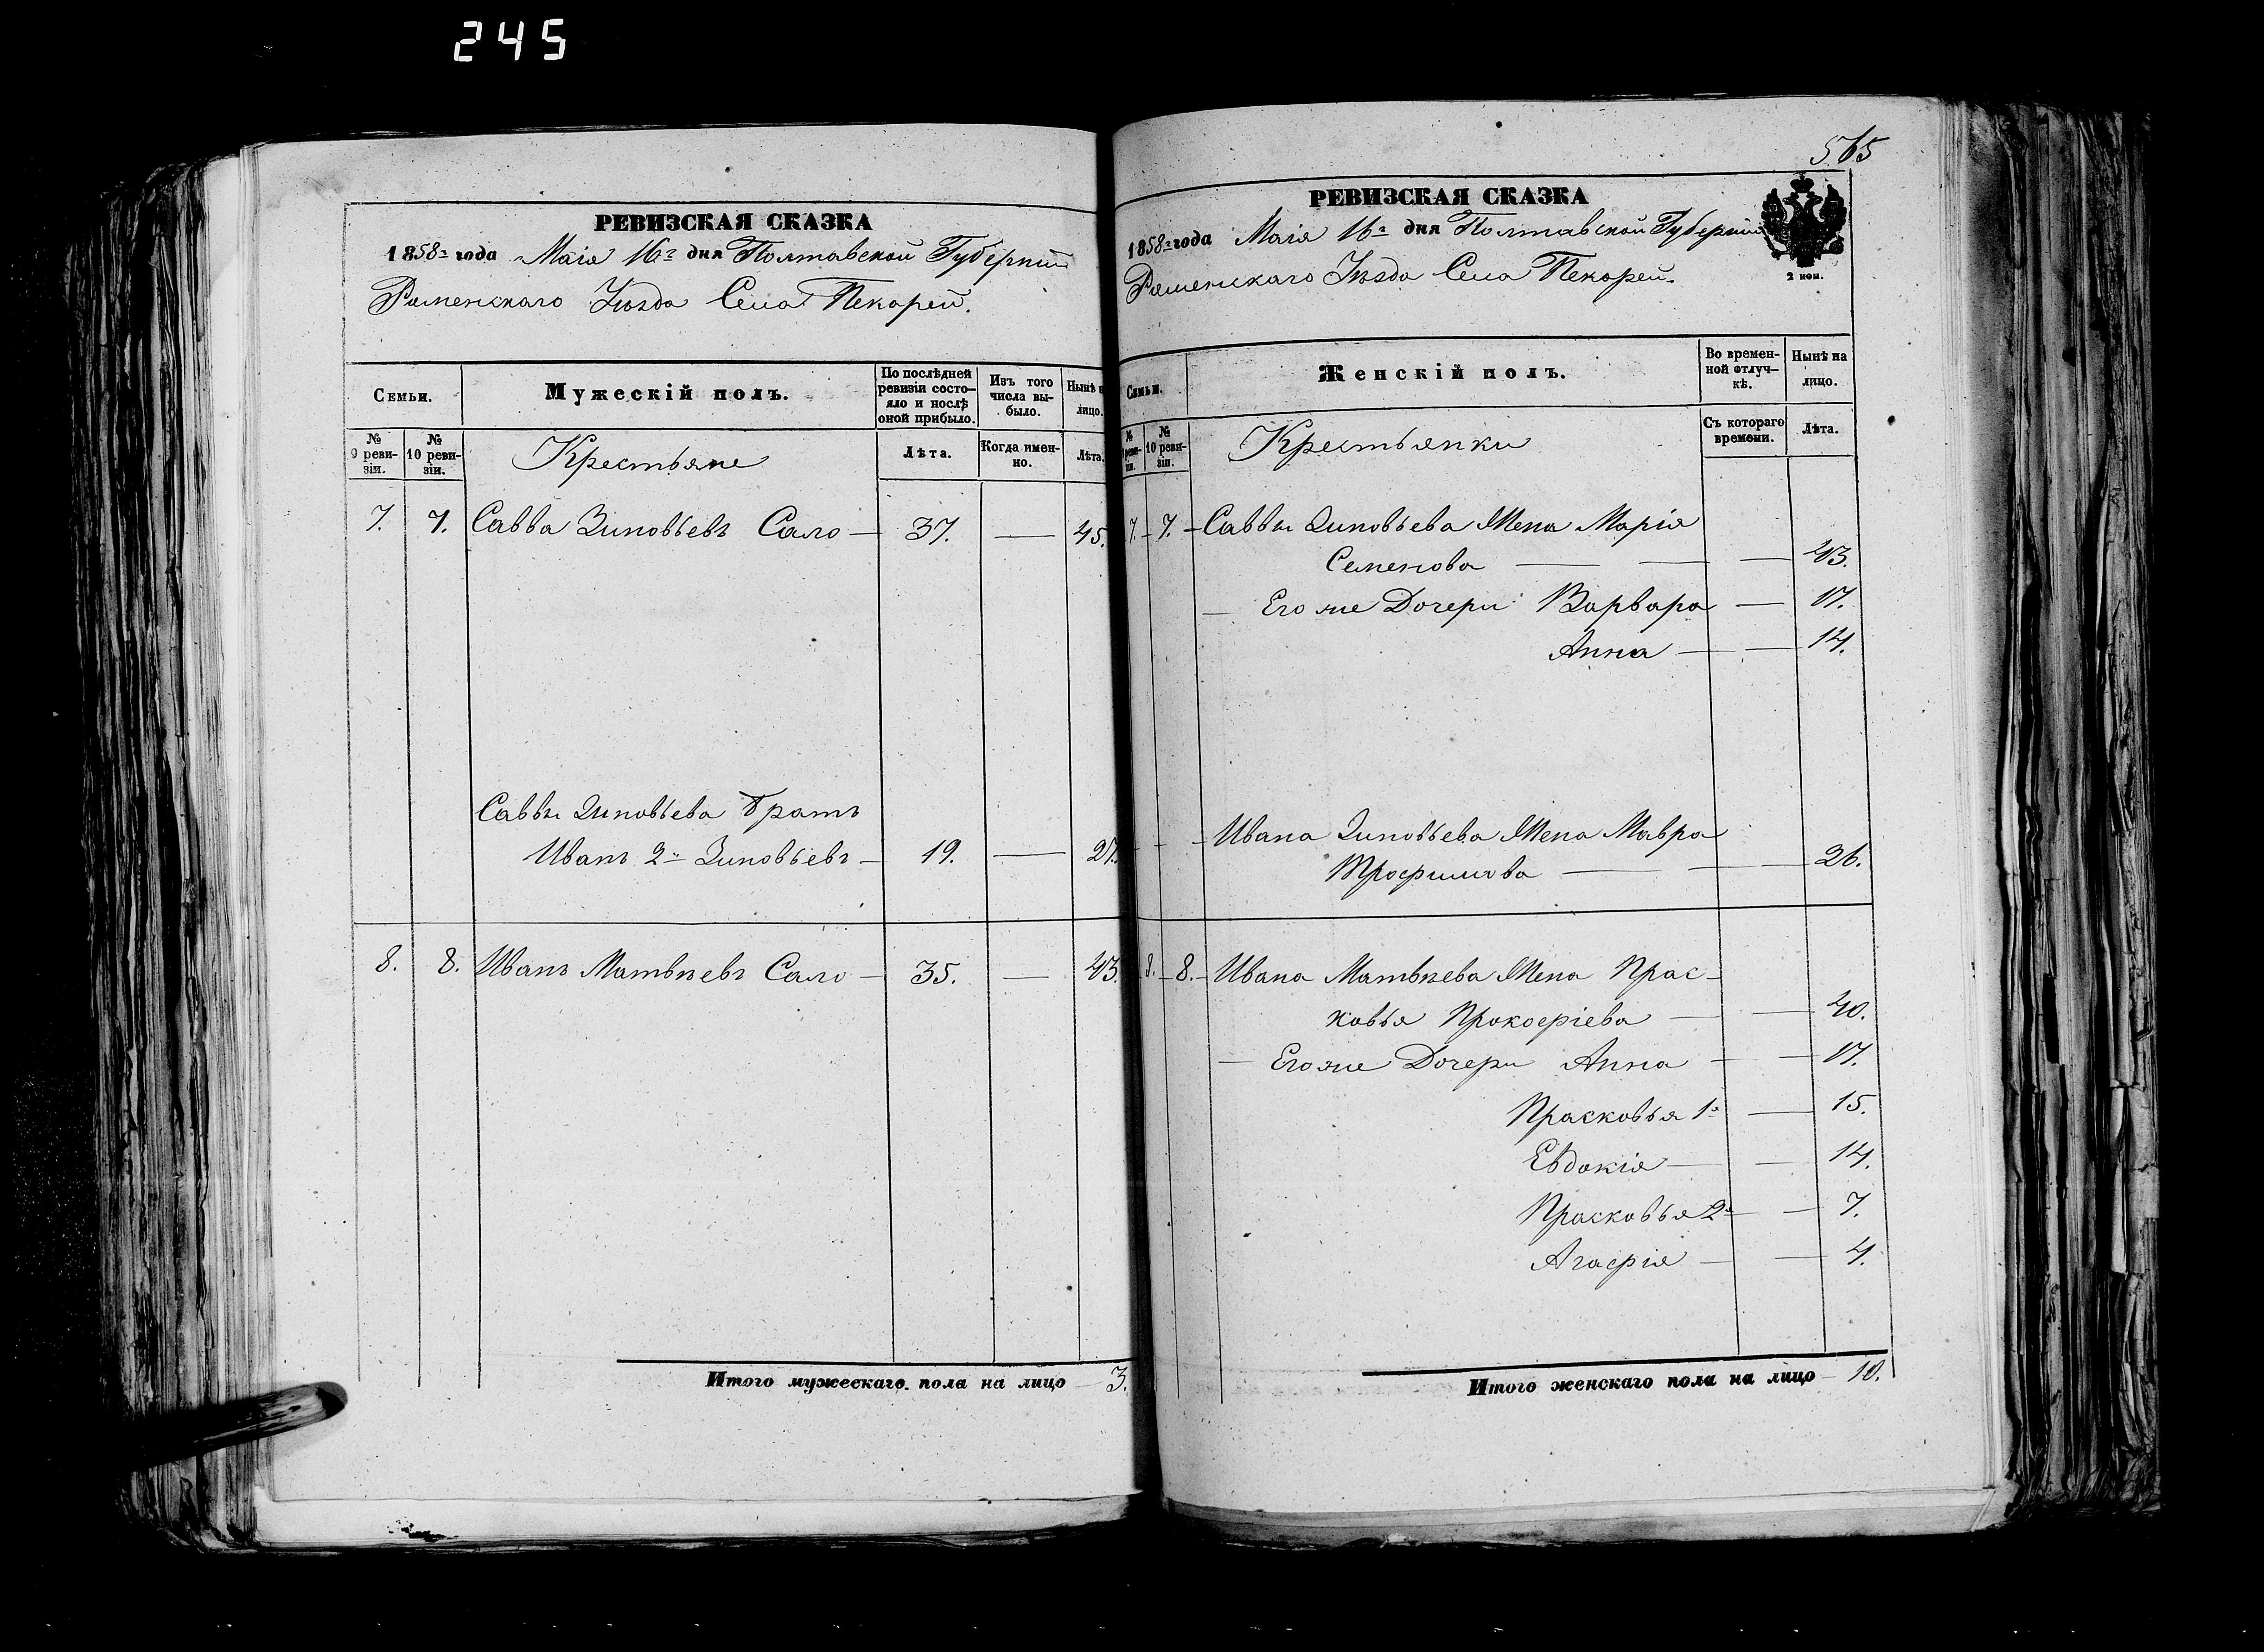 245
РЕВИЗСКАЯ СКАЗКА
1858го года Маія 16го дня Полтавской Губерніи
Роменскаго Уѣзда Села Пекарей.
Семьи.
Мужескій полъ.
По послѣдней ревизіи состояло и послѣ оной прибыло.
Изъ того числа выбыло.
Нынѣ на лицо.
№ 9 ревизіи.
№ 10 ревизіи.
Крестьяне
Лѣта.
Когда именно.
Лѣта.
7. 7. Савва Зиновьевъ Сало — 37. — 45.
Саввы Зиновьева братъ
Иванъ 2й Зиновьевъ — 19. — 27.
8. 8. Иванъ Матвѣевъ Сало — 35. — 43.
Итого мужескаго пола на лицо 3.
565
РЕВИЗСКАЯ СКАЗКА
1858го года Маія 16го дня Полтавской Губерніи
Роменскаго Уѣзда Села Пекарей.
2 коп.
Семьи.
Женскій полъ.
Во временной отлучкѣ.
Нынѣ на лицо.
№ 9 ревизіи.
№ 10 ревизіи.
Крестьянки
Съ котораго времени.
Лѣта.
7. 7. Саввы Зиновьева Жена Марія
Семенова — — — 43.
Его же Дочери Варвара — 17.
Анна — — 14.
Ивана Зиновьева Жена Мавра
Трофимова — — 26.
8. 8. Ивана Матвѣева Жена Прас-
ковья Прокофіева — — 40.
Его же Дочери Анна — — 17.
Прасковья 1я — 15.
Евдокія — — 14.
Прасковья 2я — 7.
Агафія — — 4.
Итого женскаго пола на лицо 10.